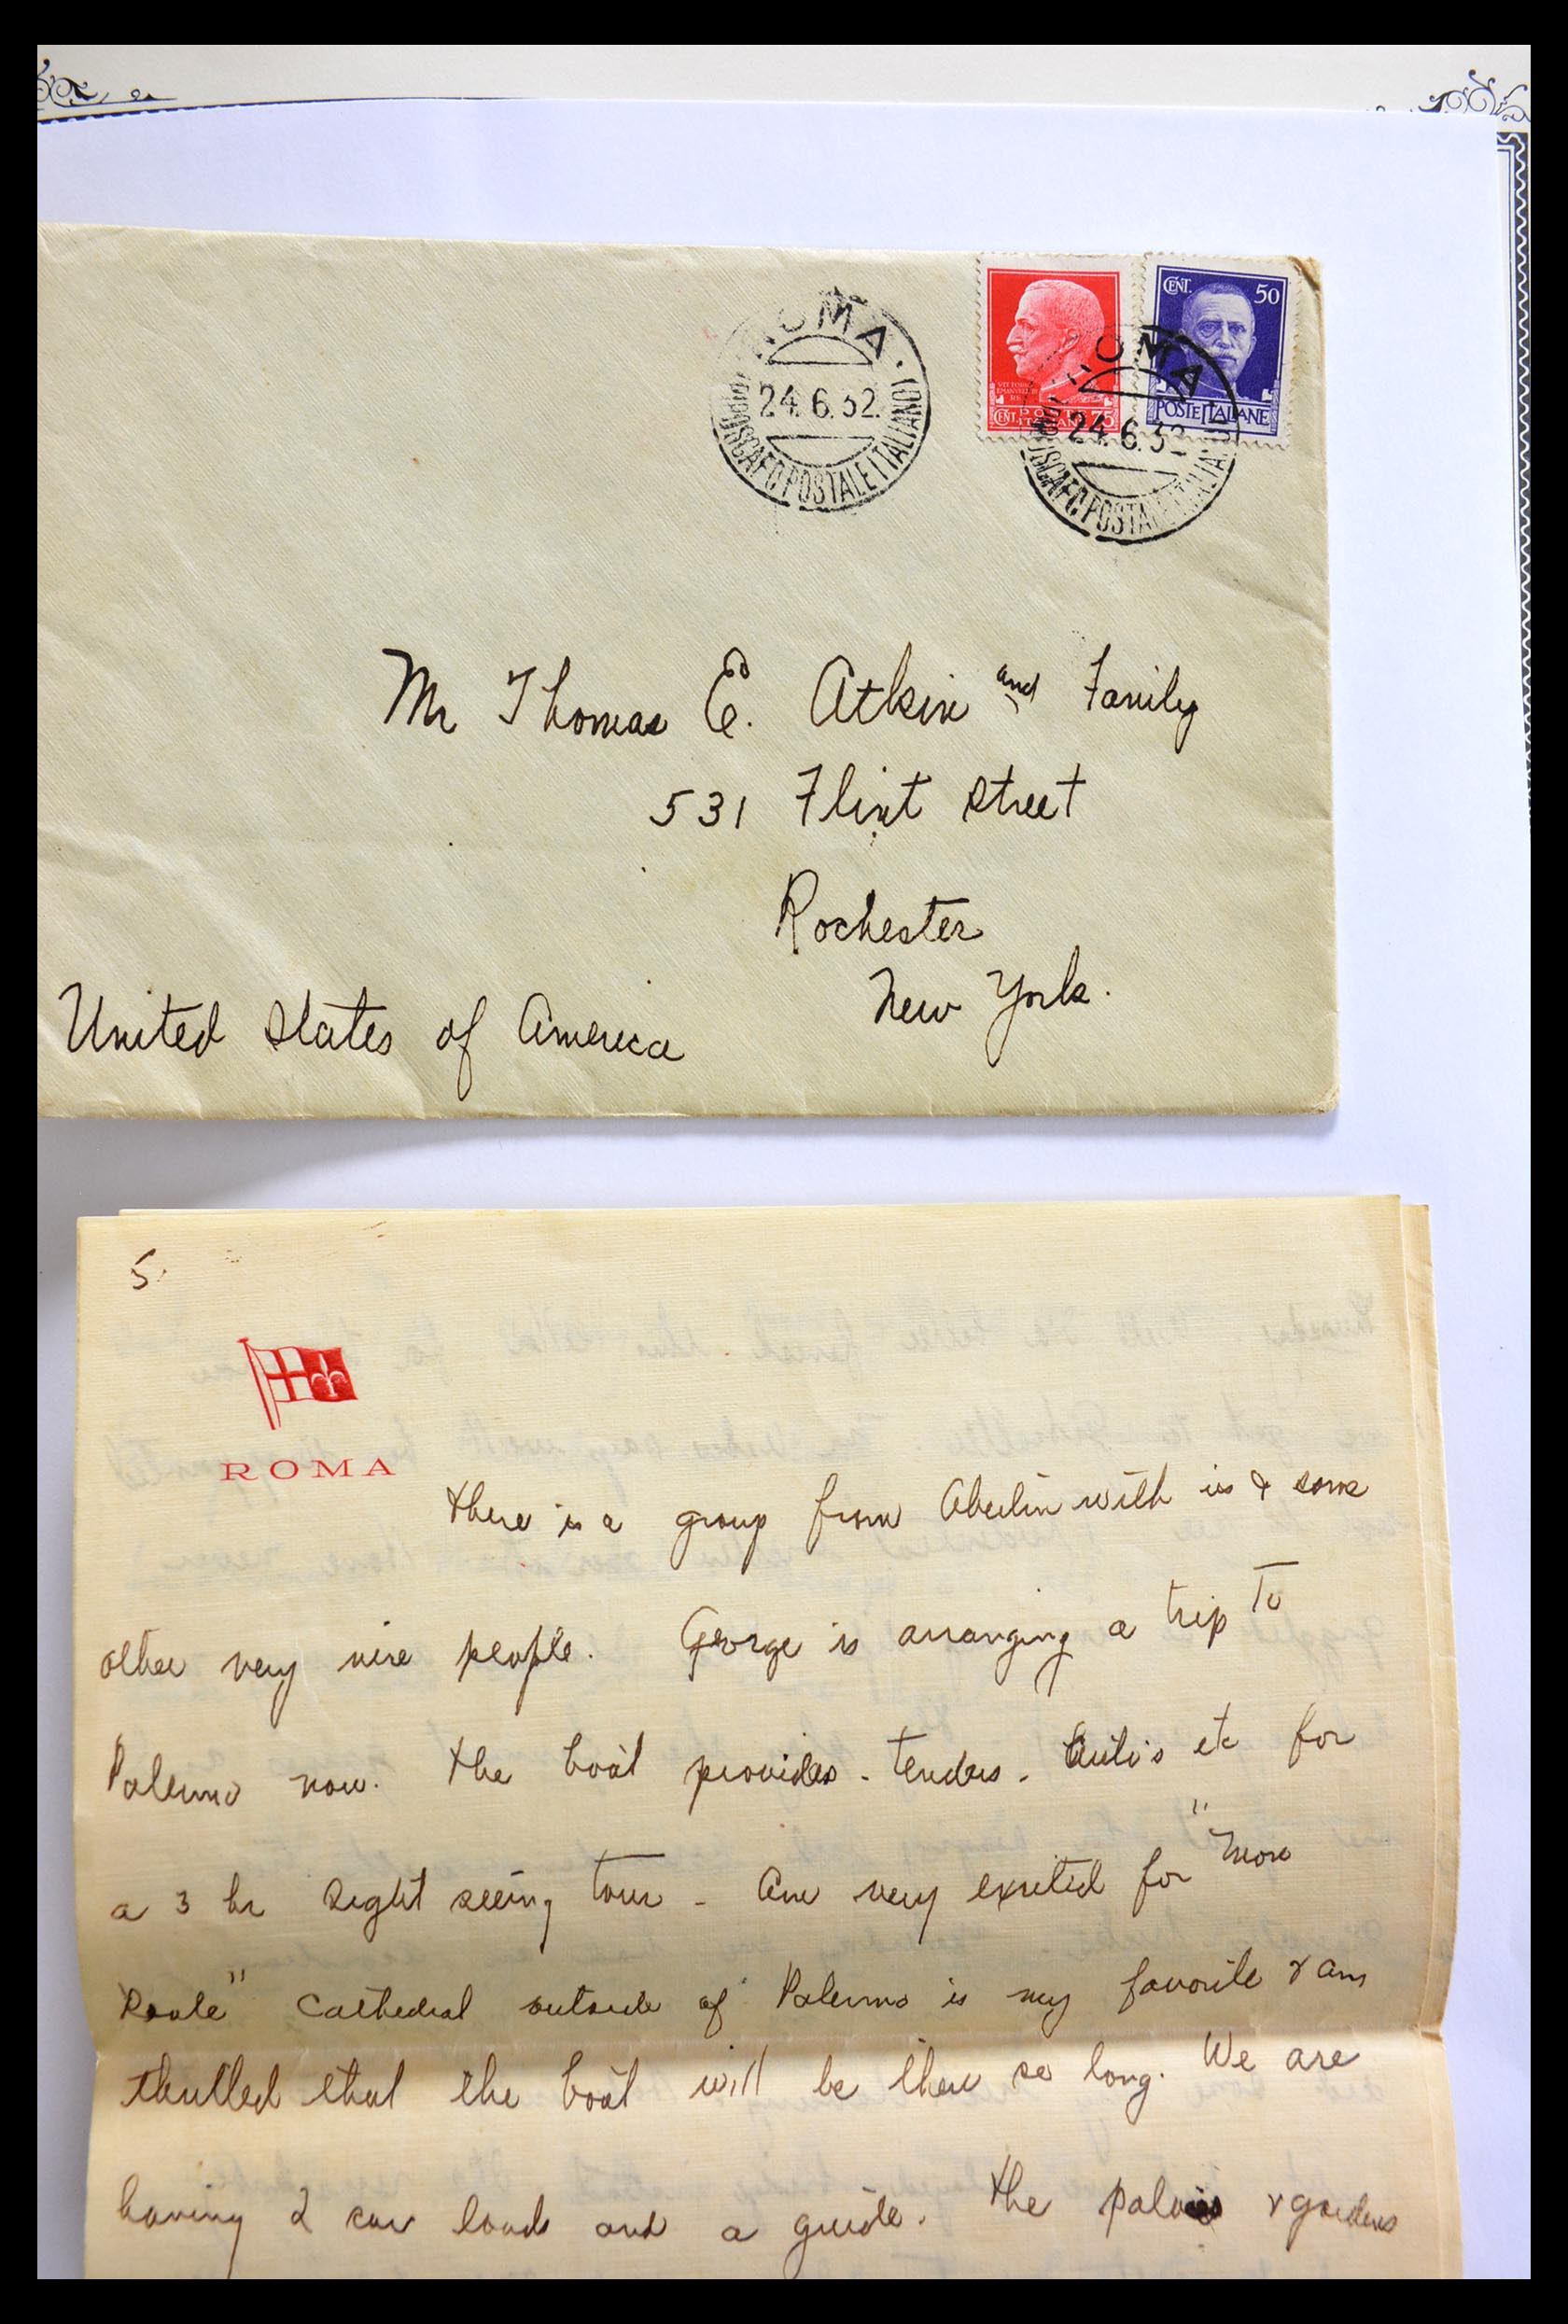 ROMA
24.6.32.
PIROSCAFO POSTALE ITALIANO
CENT. 75
POSTE ITALIANE
VITTORIO
EMANUELE III
RE
CENT. 50
POSTE ITALIANE
ROMA
24.6.32
PIROSCAFO POSTALE ITALIANO
Mr Thomas E. Atkin and Family
531 Flint Street
Rochester
New York.
United States of America
5.
ROMA
There is a group from Oberlin with us & some
other very nice people. George is arranging a trip to
Palermo now. The boat provides - tenders - auto's etc for
a 3 hr sight seeing tour - Am very exited for "Mon
Reale" Cathedral outside of Palermo is my favorite & am
thrilled that the boat will be there so long. We are
having 2 car loads and a guide. The & gardens